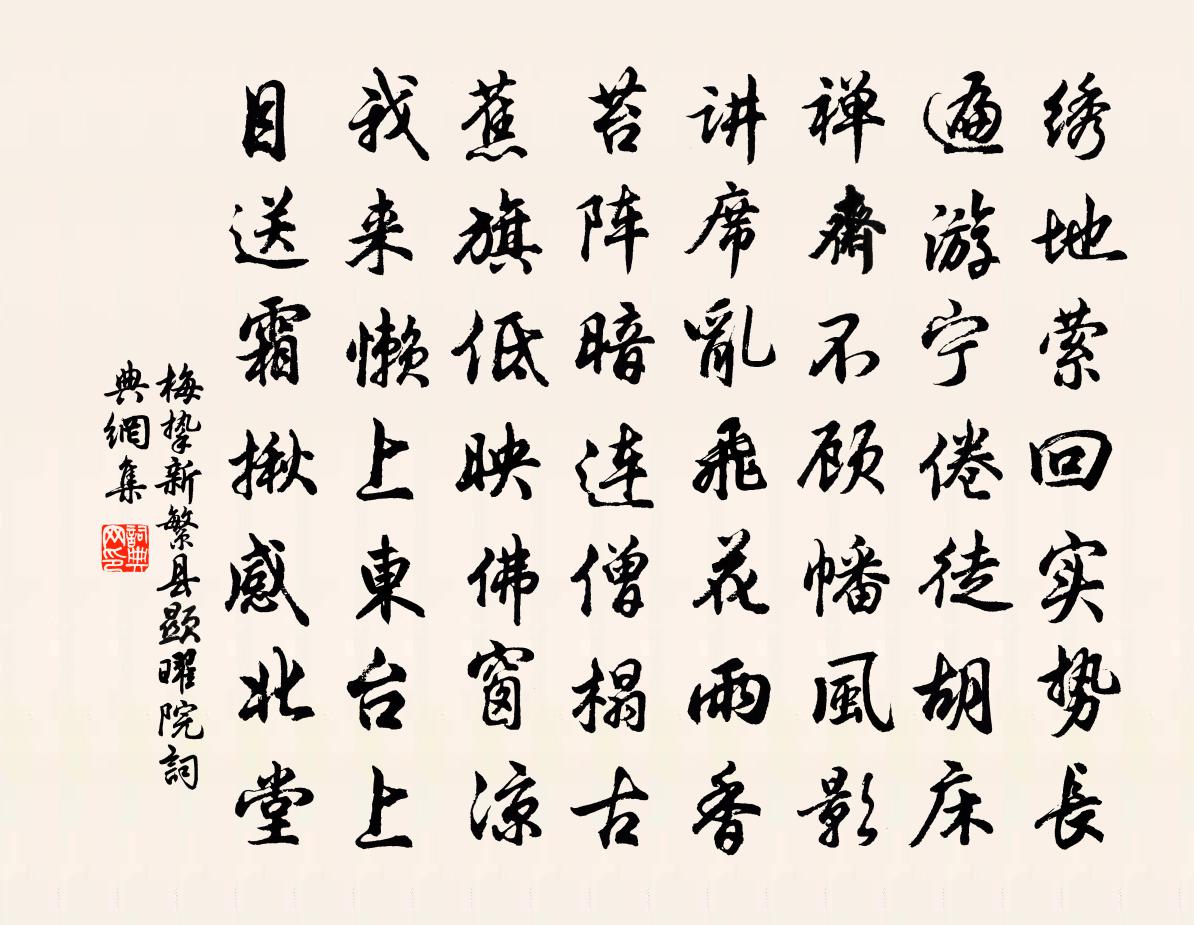 绣地萦回实势長
遍游宁倦徒胡床
禅齋不顾幡風影
讲席亂飛花雨香
苔阵暗连僧榻古
蕉旗低映佛窗凉
我来懒上東台上
目送霜揪感北堂
梅挚新繁县顯曜院詞
典網集
詞典网印